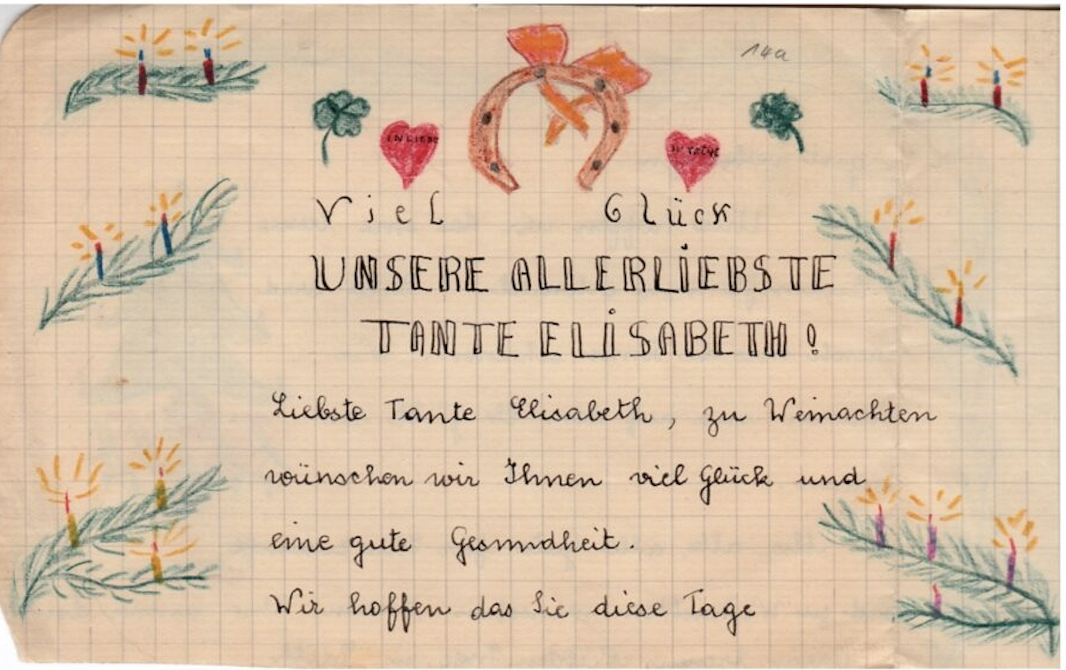 14a
IN LIEBE
IN TREUE
Viel Glück
UNSERE ALLERLIEBSTE
TANTE ELISABETH!
Liebste Tante Elisabeth, zu Weinachten
wünschen wir Ihnen viel Glück und
eine gute Gesundheit.
Wir hoffen das Sie diese Tage